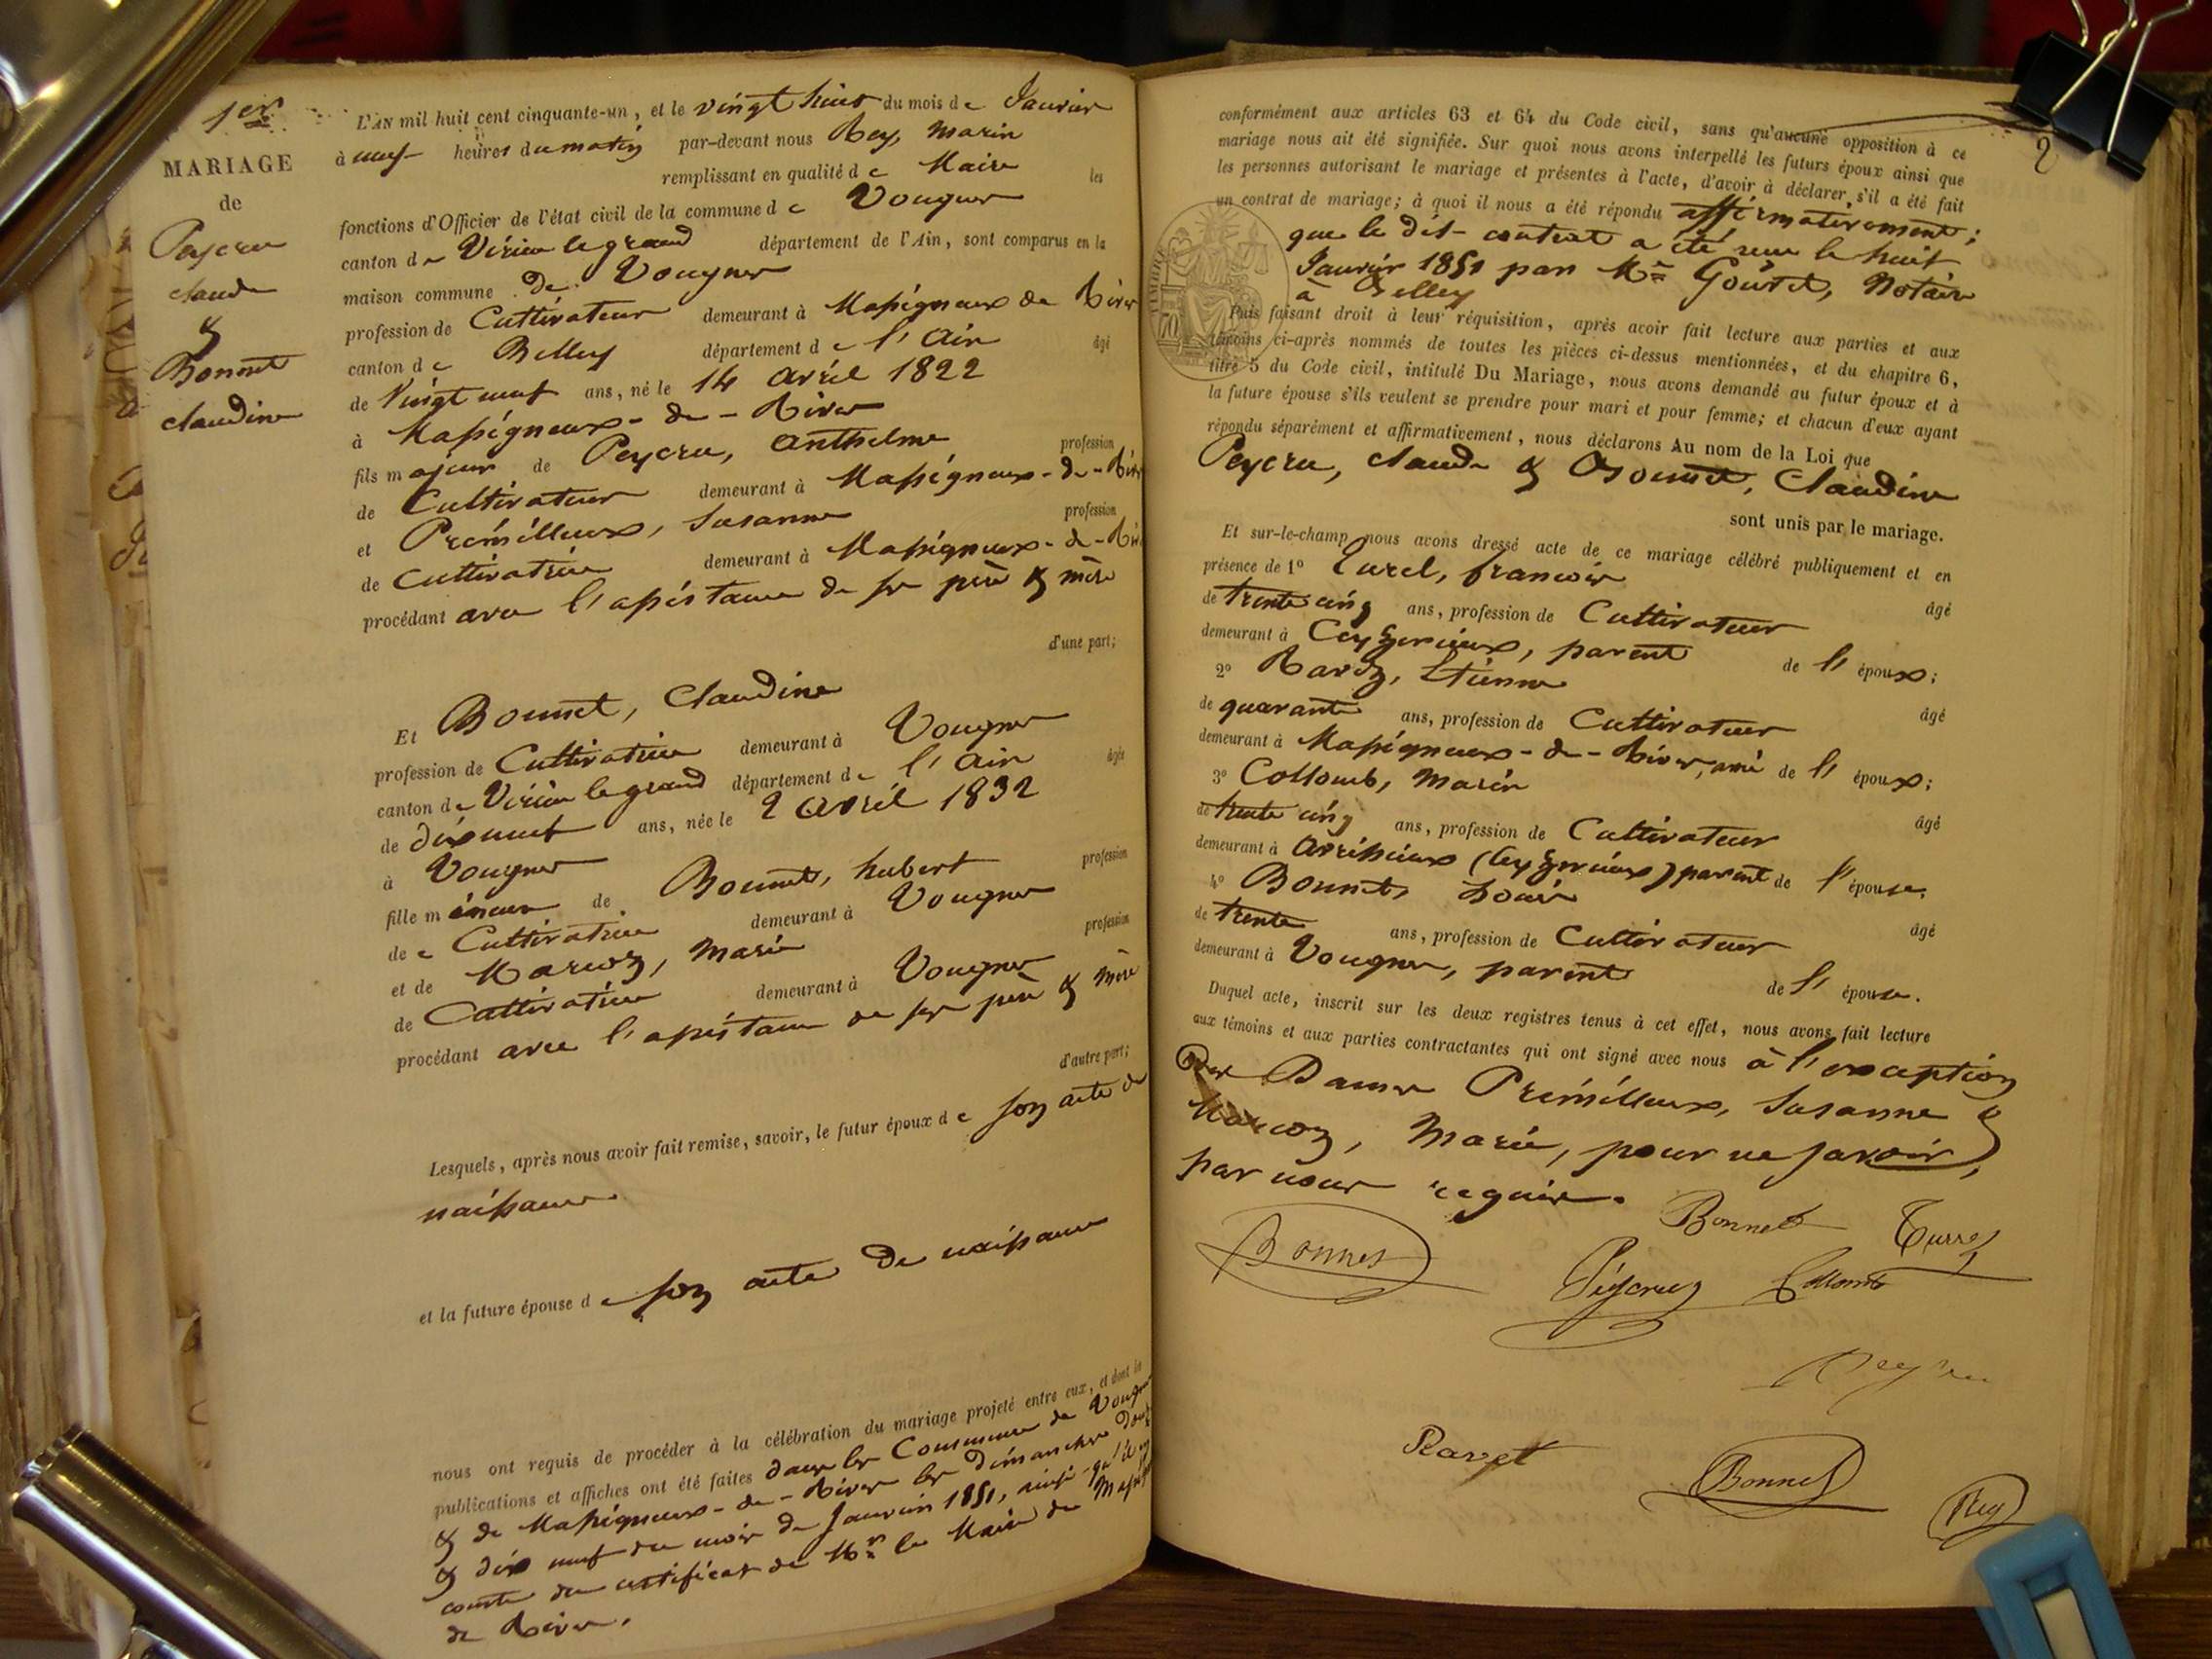 1er
MARIAGE
de
Peycru
claude
&
Bonnet
claudine
L'AN mil huit cent cinquante-un, et le vingt huit du mois de Janvier
à neuf heures du matin par-devant nous Rey, Marin
remplissant en qualité de Maire les
fonctions d'Officier de l'état civil de la commune de Vougnes
canton de Virieu le grand département de l'Ain, sont comparus en la
maison commune de Vougnes
profession de Cultivateur demeurant à Massigneux de Rives
canton de Belley département de l'Ain âgé
de Vingt neuf ans, né le 14 avril 1822
à Massigneux-de-Rives
fils majeur de Peycru, Anthelme profession
de Cultivateur demeurant à Massigneux-de-Rives
et Prémilleux, Susanne profession
de Cultivatrice demeurant à Massigneux-de-Riv
procédant avec l'assistance de ses père & mère
d'une part;
Et Bonnet, Claudine
profession de Cultivatrice demeurant à Vougnes
canton de Virieu le grand département de l'Ain âgée
de dix neuf ans, née le 2 avril 1832
à Vougnes
fille mineur de Bonnet, hubert profession
de Cultivatrice demeurant à Vougnes
et de Marcoz, Marie profession
de Cultivatrice demeurant à Vougnes
procédant avec l'assistance de ses père & mère
d'autre part;
Lesquels, après nous avoir fait remise, savoir, le futur époux de son acte de
naissance.
et la future épouse de son acte de naissance
nous ont requis de procéder à la célébration du mariage projeté entre eux, et dont les
publications et affiches ont été faites dans les Communes de Vougnes
& de Massigneux-de-Rives les dimanches douze
& dix neuf du mois de Janvier 1851, ainsi qu'il en
conste du certificat de Mr le Maire de Massigneux
de Rives.
2
conformément aux articles 63 et 64 du Code civil, sans qu'aucune opposition à ce
mariage nous ait été signifiée. Sur quoi nous avons interpellé les futurs époux ainsi que
les personnes autorisant le mariage et présentes à l'acte, d'avoir à déclarer s'il a été fait
un contrat de mariage; à quoi il nous a été répondu affirmativement;
que le dit contrat a été reçu le huit
Janvier 1851 par Me Gouret, Notaire
à Belley
TIMBRE
70
Puis faisant droit à leur réquisition, après avoir fait lecture aux parties et aux
témoins ci-après nommés de toutes les pièces ci-dessus mentionnées, et du chapitre 6,
titre 5 du Code civil, intitulé Du Mariage, nous avons demandé au futur époux et à
la future épouse s'ils veulent se prendre pour mari et pour femme; et chacun d'eux ayant
répondu séparément et affirmativement, nous déclarons Au nom de la Loi que
Peycru, claude & Bonnet, Claudine
sont unis par le mariage.
Et sur-le-champ nous avons dressé acte de ce mariage célébré publiquement et en
présence de 1º Turel, francois
de trente cinq ans, profession de Cultivateur âgé
demeurant à Ceyzerieux, parent de l'époux;
2º Etienne
de quarante ans, profession de Cultivateur âgé
demeurant à Massigneux-de-Rives, ami de l'époux;
3º Collomb, Marin
de trente cinq ans, profession de Cultivateur âgé
demeurant à (Ceyzerieux) parent de l'épouse,
4º Bonnet, Louis
de trente ans, profession de Cultivateur âgé
demeurant à Vougnes, parent de l'épouse.
Duquel acte, inscrit sur les deux registres tenus à cet effet, nous avons fait lecture
aux témoins et aux parties contractantes qui ont signé avec nous à l'exception
des Dames Prémilleux, Susanne &
Marcoz, Marie, pour ne savoir,
par nous requis.
Bonnet Turrel
Bonnet
Peycruz Collomb
Ravet
Bonnet
Rey